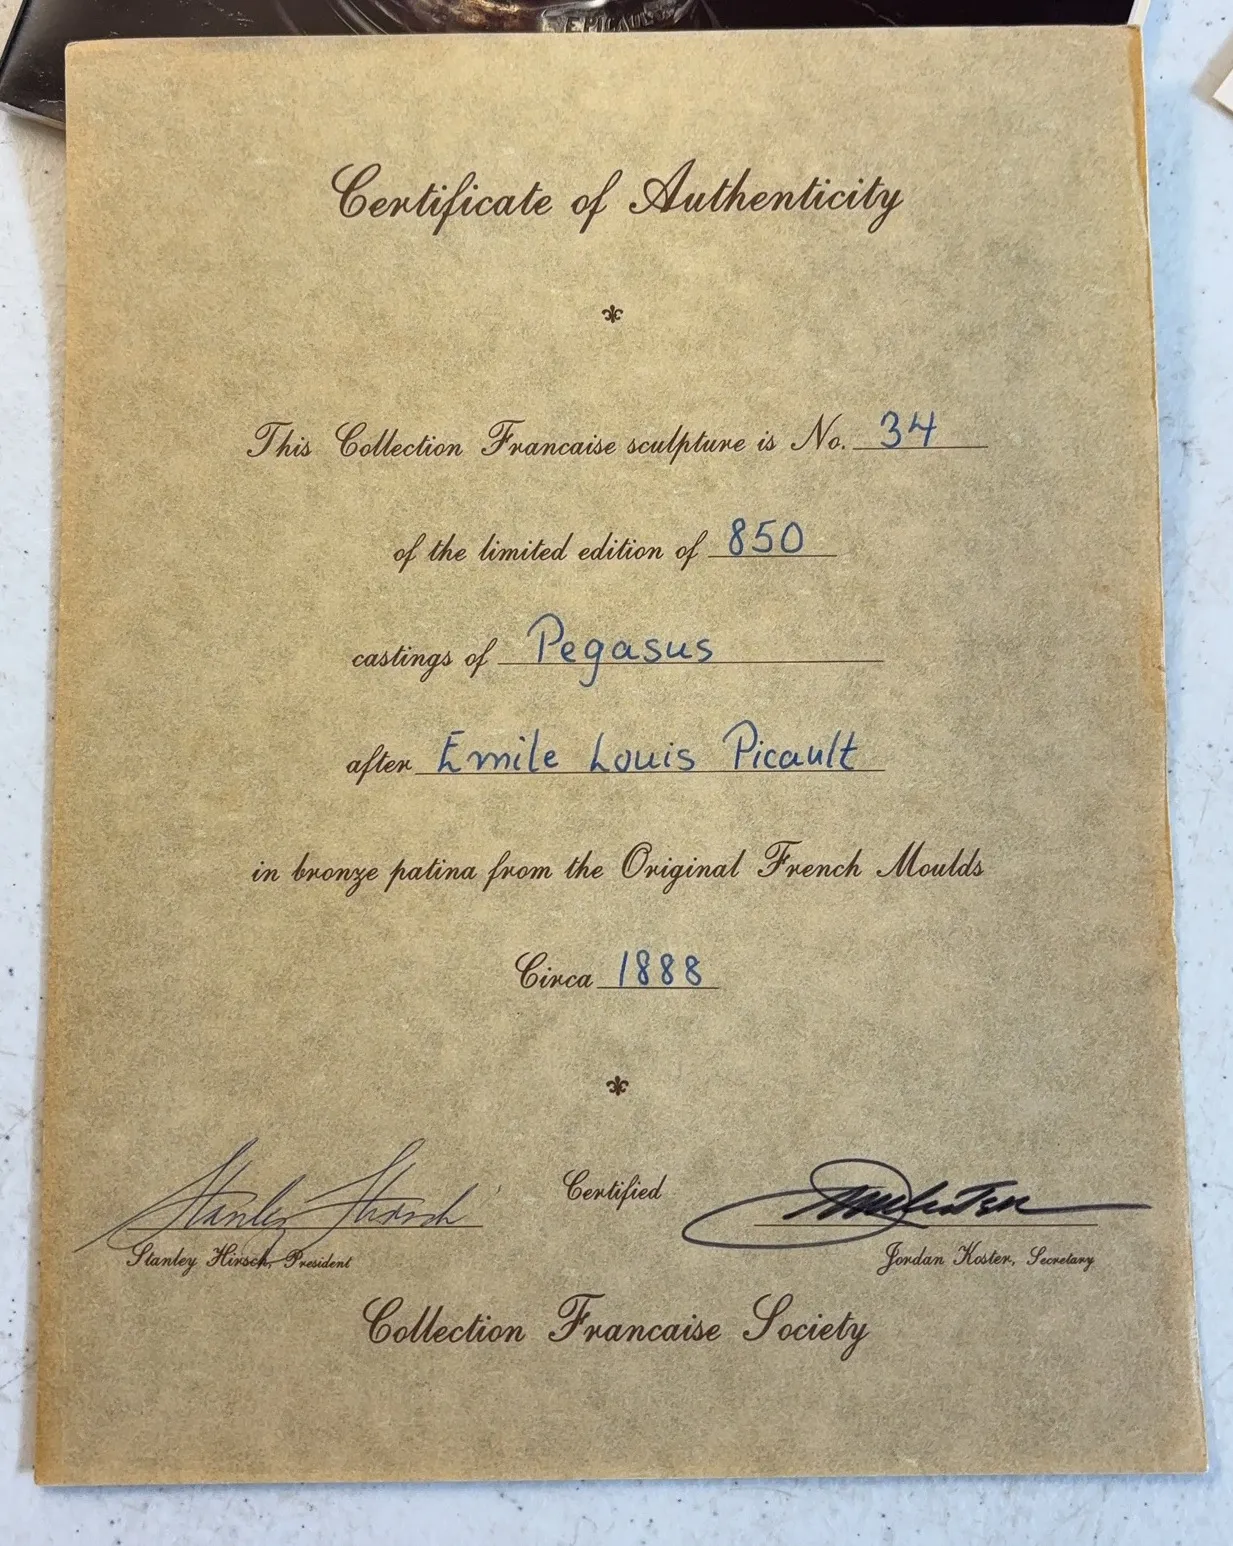 E PICAULT
Certificate of Authenticity
This Collection Francaise sculpture is No. 34
of the limited edition of 850
castings of Pegasus
after Emile Louis Picault
in bronze patina from the Original French Moulds
Circa 1888
Stanley Hirsch
Certified
Stanley Hirsch, President
Jordan Koster, Secretary
Collection Francaise Society